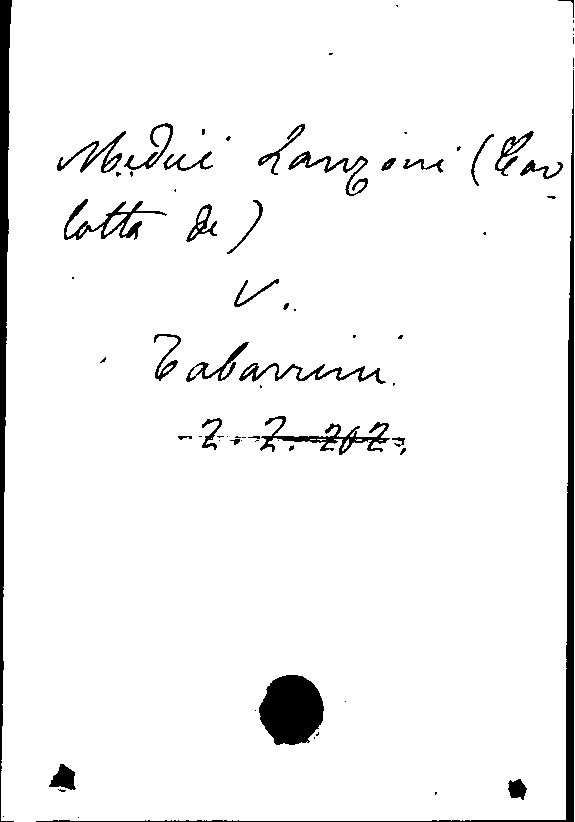 Medici Lanzoni (Car
lotta de)
V.
Tabarrini
2. 2. 202.